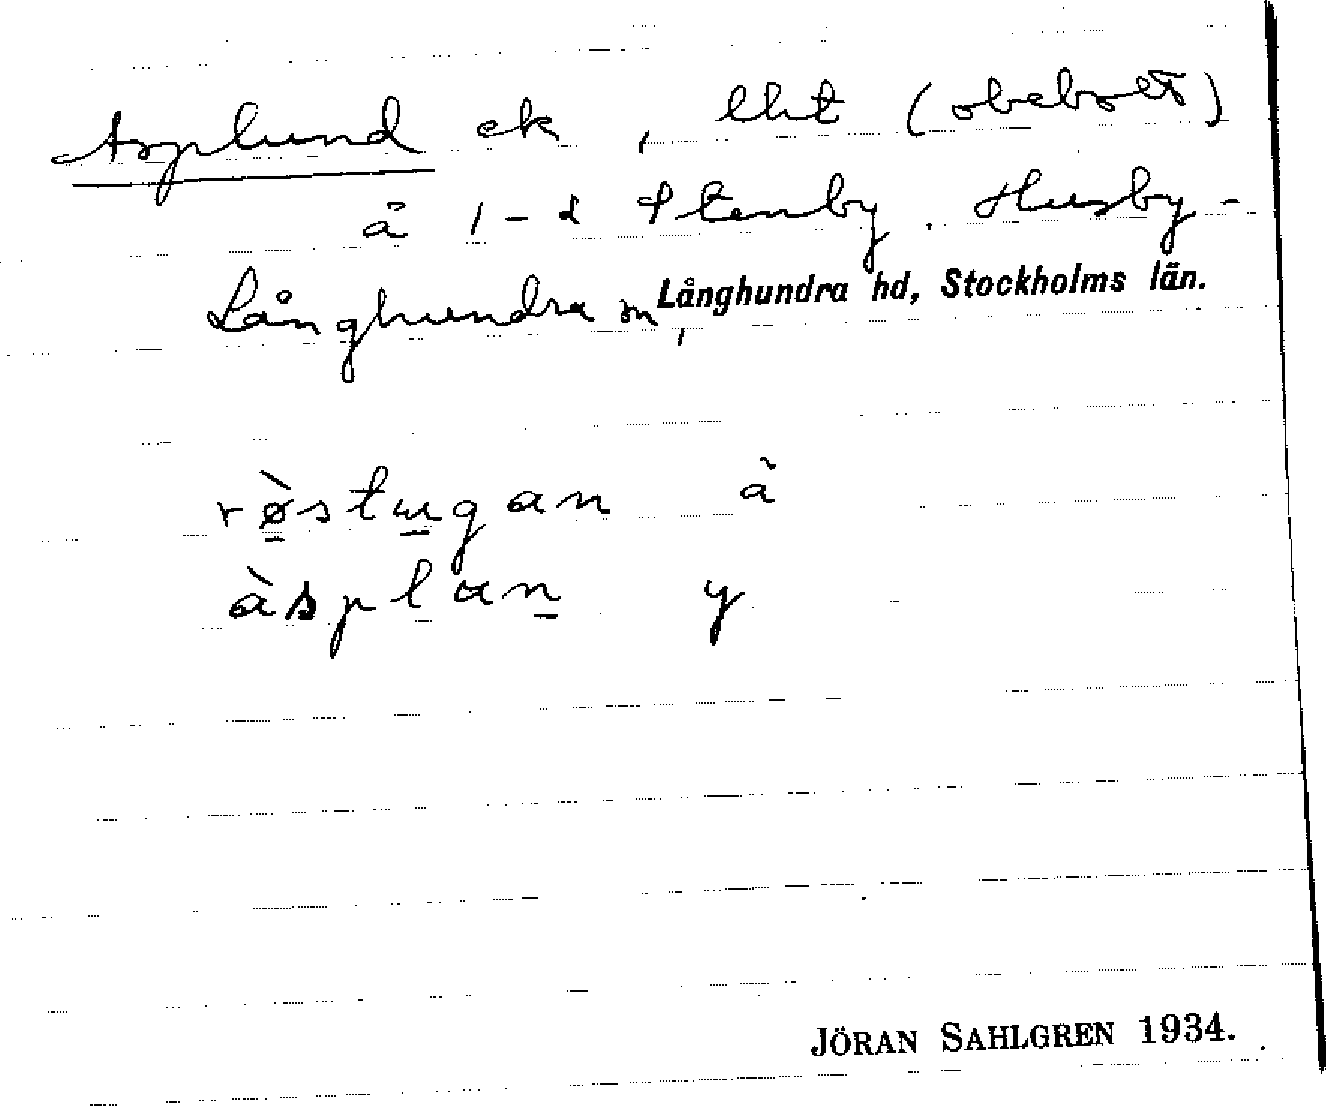 Asplund ek, lht (obebott)
å 1-2 Stenby. Husby-
Långhundra sn, Långhundra hd, Stockholms län.
rø̀stɯgan ä
àsplan y
JÖRAN SAHLGREN 1934.